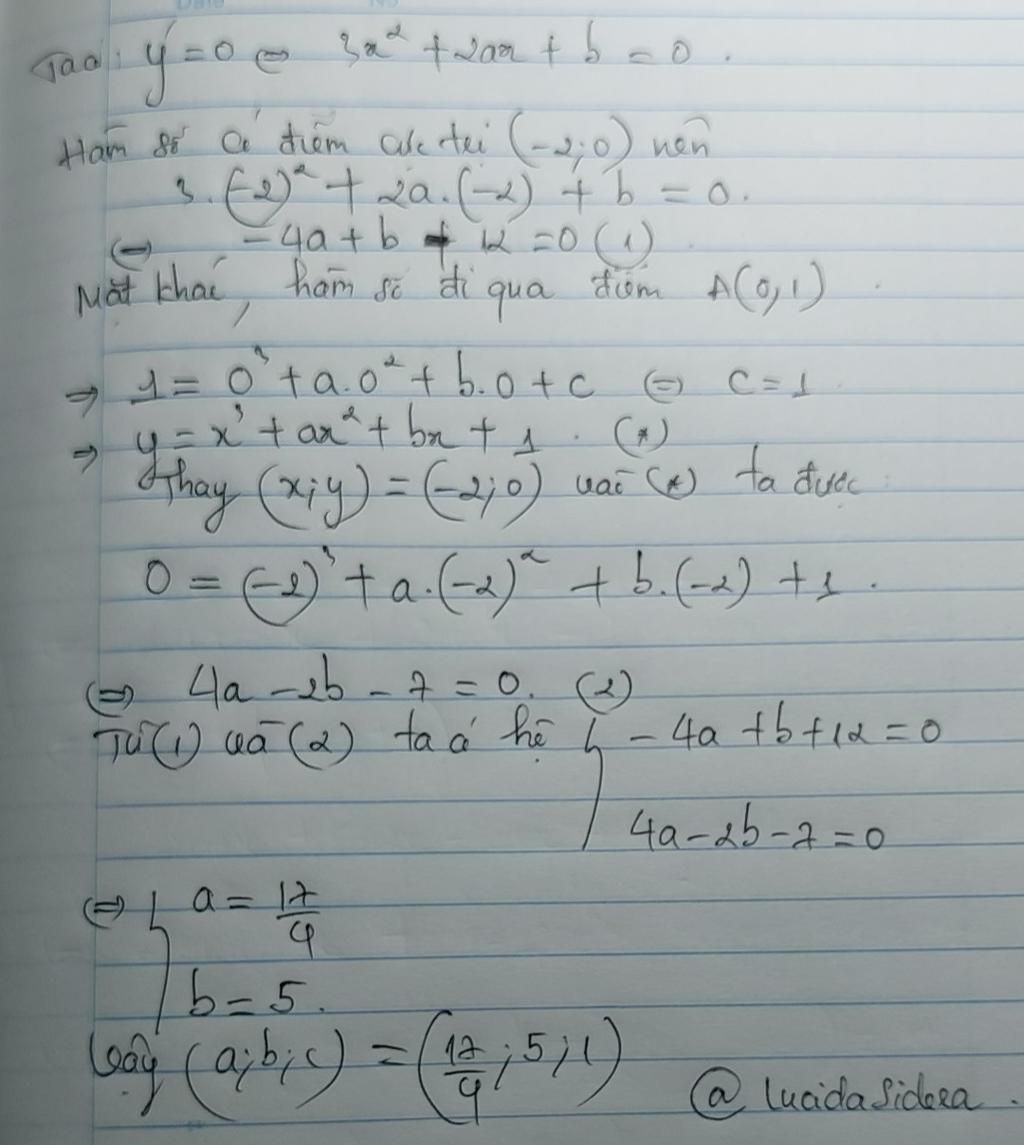 Ta có: y' = 0 ⇔ 3x² + 2ax + b = 0.
Hàm số có điểm cực trị (-2;0) nên
3.(-2)² + 2a.(-2) + b = 0.
⇔ -4a + b + 12 = 0 (1).
Mặt khác, hàm số đi qua điểm A(0,1).
⇒ 1 = 0³ + a.0² + b.0 + c ⇔ c = 1.
⇒ y = x³ + ax² + bx + 1. (*)
Thay (x;y) = (-2;0) vào (*) ta được:
0 = (-2)³ + a.(-2)² + b.(-2) + 1.
⇔ 4a - 2b - 7 = 0. (2)
Từ (1) và (2) ta có hệ { -4a + b + 12 = 0
4a - 2b - 7 = 0
⇔ { a = 17/4
b = 5.
Vậy (a;b;c) = (17/4; 5; 1)
@lucidasidera.